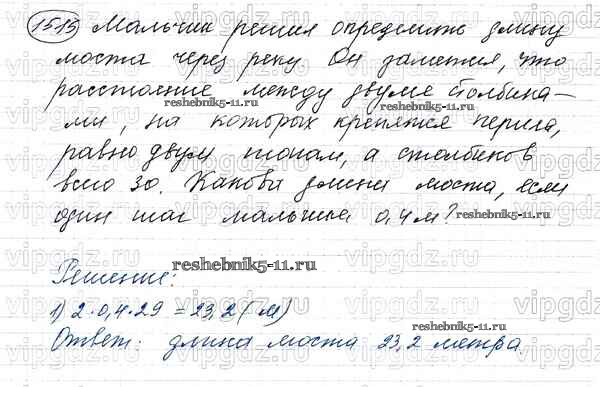 1515 Мальчик решил определить длину
моста через реку Он заметил, что
расстояние между двумя столбика-
ми, на которых крепятся перила,
равно двум шагам, а столбиков
всего 30. Какова длина моста, если
один шаг мальчика 0,4м?
reshebnik5-11.ru
reshebnik5-11.ru
reshebnik5-11.ru
Решение:
1) 2·0,4·29 = 23,2 (м)
Ответ: длина моста 23,2 метра.
reshebnik5-11.ru
vipgdz